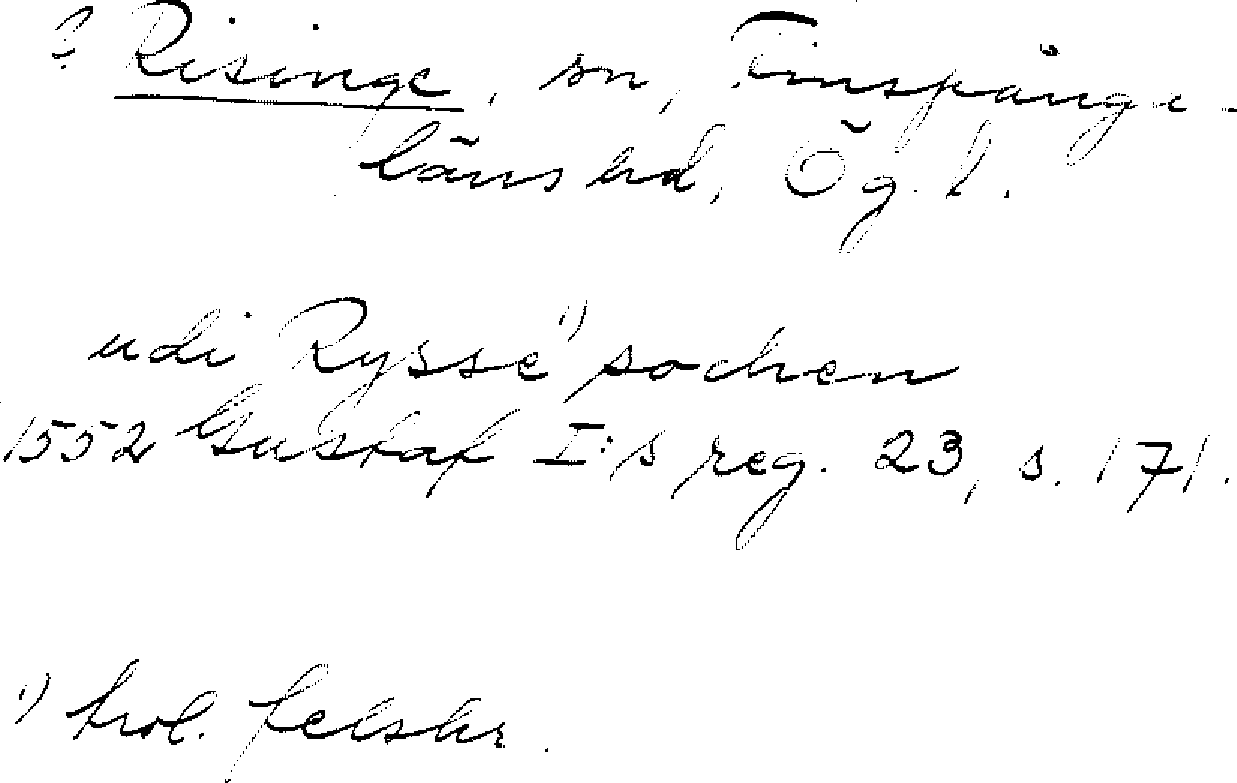 ? Risinge, sn, Finspånga-
läns hd, Ög. l.
udi Rysse¹⁾ sochen
1552 Gustaf I:s reg. 23, s. 171.
¹⁾ trol. felskr.